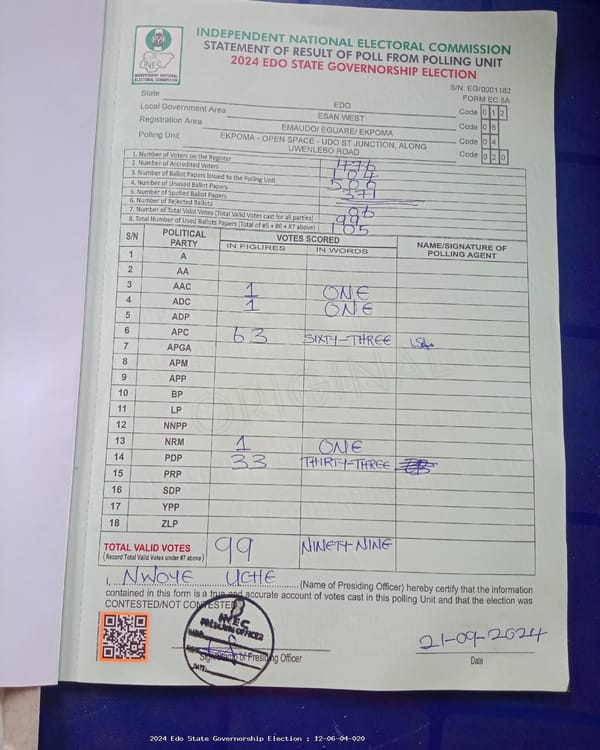 INDEPENDENT NATIONAL ELECTORAL COMMISSION
STATEMENT OF RESULT OF POLL FROM POLLING UNIT
2024 EDO STATE GOVERNORSHIP ELECTION
INEC
INDEPENDENT NATIONAL ELECTORAL COMMISSION
S/N: EG/0001182
FORM EC 8A
State EDO Code 0 1 2
Local Government Area ESAN WEST Code 0 6
Registration Area EMAUDO/ EGUARE/ EKPOMA Code 0 4
Polling Unit EKPOMA - OPEN SPACE - UDO ST JUNCTION, ALONG UWENLEBO ROAD Code 0 2 0
1. Number of Voters on the Register 476
2. Number of Accredited Voters 104
3. Number of Ballot Papers Issued to the Polling Unit 506
4. Number of Unused Ballot Papers 371
5. Number of Spoiled Ballot Papers
6. Number of Rejected Ballots 06
7. Number of Total Valid Votes (Total Valid Votes cast for all parties) 99
8. Total Number of Used Ballots Papers (Total of #5 + #6 + #7 above) 105
S/N POLITICAL PARTY VOTES SCORED NAME/SIGNATURE OF POLLING AGENT
IN FIGURES IN WORDS
1 A
2 AA
3 AAC 1 ONE
4 ADC 1 ONE
5 ADP
6 APC 63 SIXTY-THREE
7 APGA
8 APM
9 APP
10 BP
11 LP
12 NNPP
13 NRM 1 ONE
14 PDP 33 THIRTY-THREE
15 PRP
16 SDP
17 YPP
18 ZLP
ORIGINAL
TOTAL VALID VOTES 99 NINETY NINE
(Record Total Valid Votes under #7 above)
I, NWOYE UCHE (Name of Presiding Officer) hereby certify that the information
contained in this form is a true and accurate account of votes cast in this polling Unit and that the election was
CONTESTED/NOT CONTESTED
INEC
PRESIDING OFFICER
DATE
21-09-2024
Signature of Presiding Officer
Date
2024 Edo State Governorship Election : 12-06-04-020